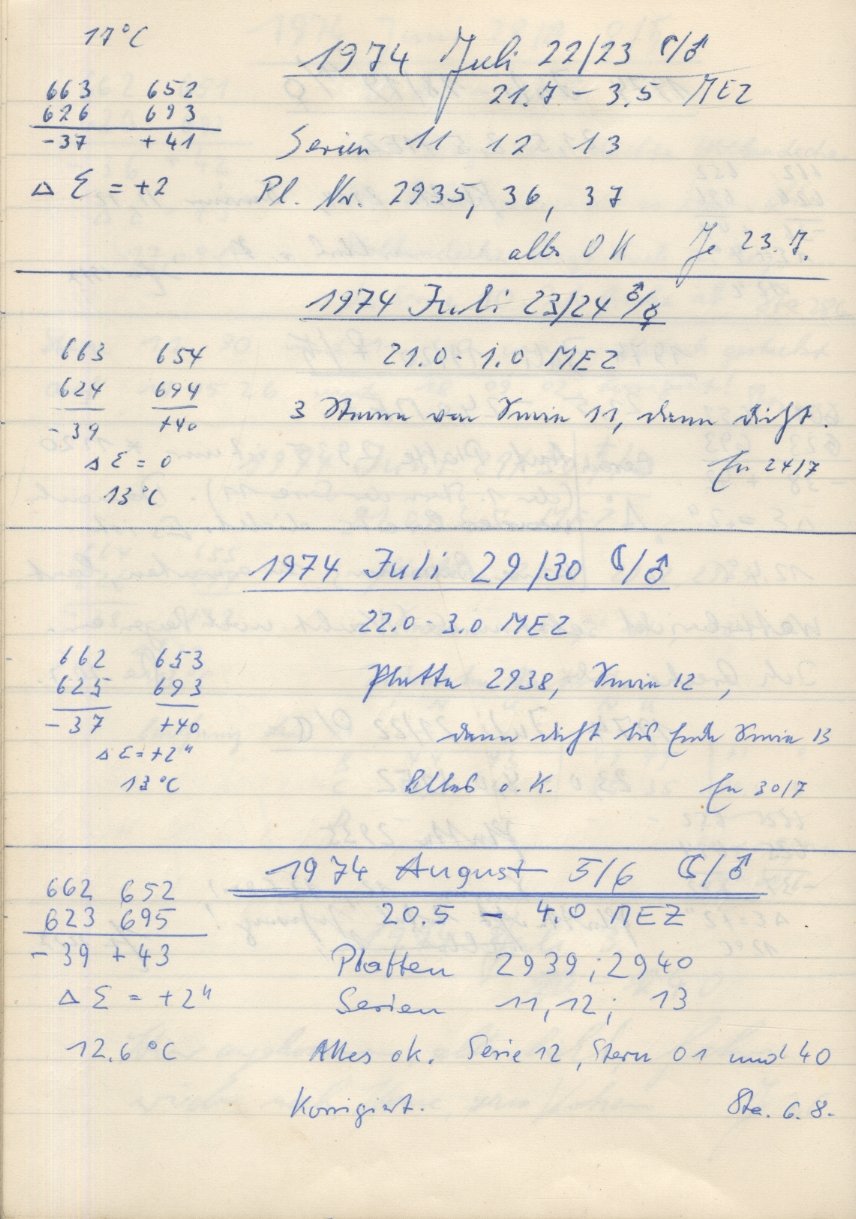 17°C
1974 Juli 22/23 ☾/♂
21.7 - 3.5 MEZ
663 652
626 693
-37 +41
Serien 11 12 13
Δ Σ = +2
Pl. Nr. 2935, 36, 37
alles OK Je 23.7.
1974 Juli 23/24 ♂/☿
663 654
21.0 - 1.0 MEZ
624 694
3 Sterne von Serie 11, dann dicht.
-39 +40
Δ Σ = 0
En 24/7
13°C
1974 Juli 29/30 ☾/♂
22.0 - 3.0 MEZ
662 653
Platte 2938, Serie 12,
625 693
-37 +40
dann dicht bis Ende Serie 13
Δ Σ = +2"
13°C
Alles o.K. En 30/7
1974 August 5/6 ☾/♂
662 652
623 695
20.5 - 4.0 MEZ
-39 +43
Platten 2939; 2940
Δ Σ = +2"
Serien 11, 12; 13
12.6 °C
Alles ok. Serie 12, Stern 01 und 40
Korrigiert. Sta. 6.8.